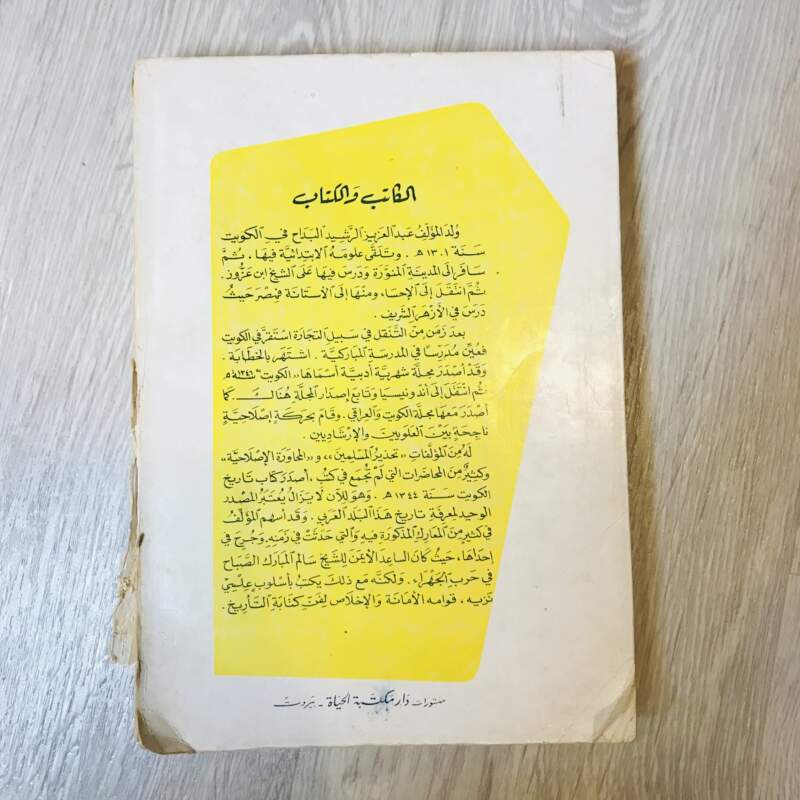 الكاتب والكتاب
وُلد المؤلّف عبد العزيز الرَّشيد البداح في الكويت
سَنة ١٣٠١ ه‍ . وتلقى علومه الابتدائية فيها ، ثمَّ
سافر إلى المدينة المنورة ودرس فيها على الشيخ ابن عزّوز .
ثمَّ انتقل إلى الإحسا ، ومنها إلى الأستانة فمصر حيثُ
درسَ في الأزهر الشريف .
بعد زمن من التنقل في سبيل التجارة استقر في الكويت
فعيّن مُدرّسا في المدرسة المباركية . اشتهر بالخطابة .
وقد أصدر مجلة شهرية أدبية أسماها «الكويت» ١٣٤٦ ه‍
ثم انتقل إلى أندونيسيا وتابع إصدار المجلة هُناك . كما
أصدر معها مجلة الكويت والعراقي . وقام بحركة إصلاحية
ناجحة بين العلويين والإرشاديين .
له من المؤلفات «تحذير المسلمين» ، و «المحاورة الإصلاحية»
وكثيرٌ من المحاضرات التي لم تجمع في كتُب ، أصدر كتاب تاريخ
الكويت سنة ١٣٤٤ ه‍ . وهو للآن لا يزالُ يُعتبرُ المصدر
الوحيد لمعرفة تاريخ هذا البلد العربي . وقد أسهم المؤلّف
في كثير من المعارك المذكورة فيه والتي حدثت في زمنه وجُرح في
إحداها ، حيثُ كان الساعد الأيمن للشيخ سالم المبارك الصّباح
في حرب الجهراء . ولكنّه مع ذلك يكتبُ بأسلوب علميّ
نزيه ، قوامه الأمانة والإخلاص لفن كتابة التأريخ .
منشورات دار مكتبة الحياة - بيروت